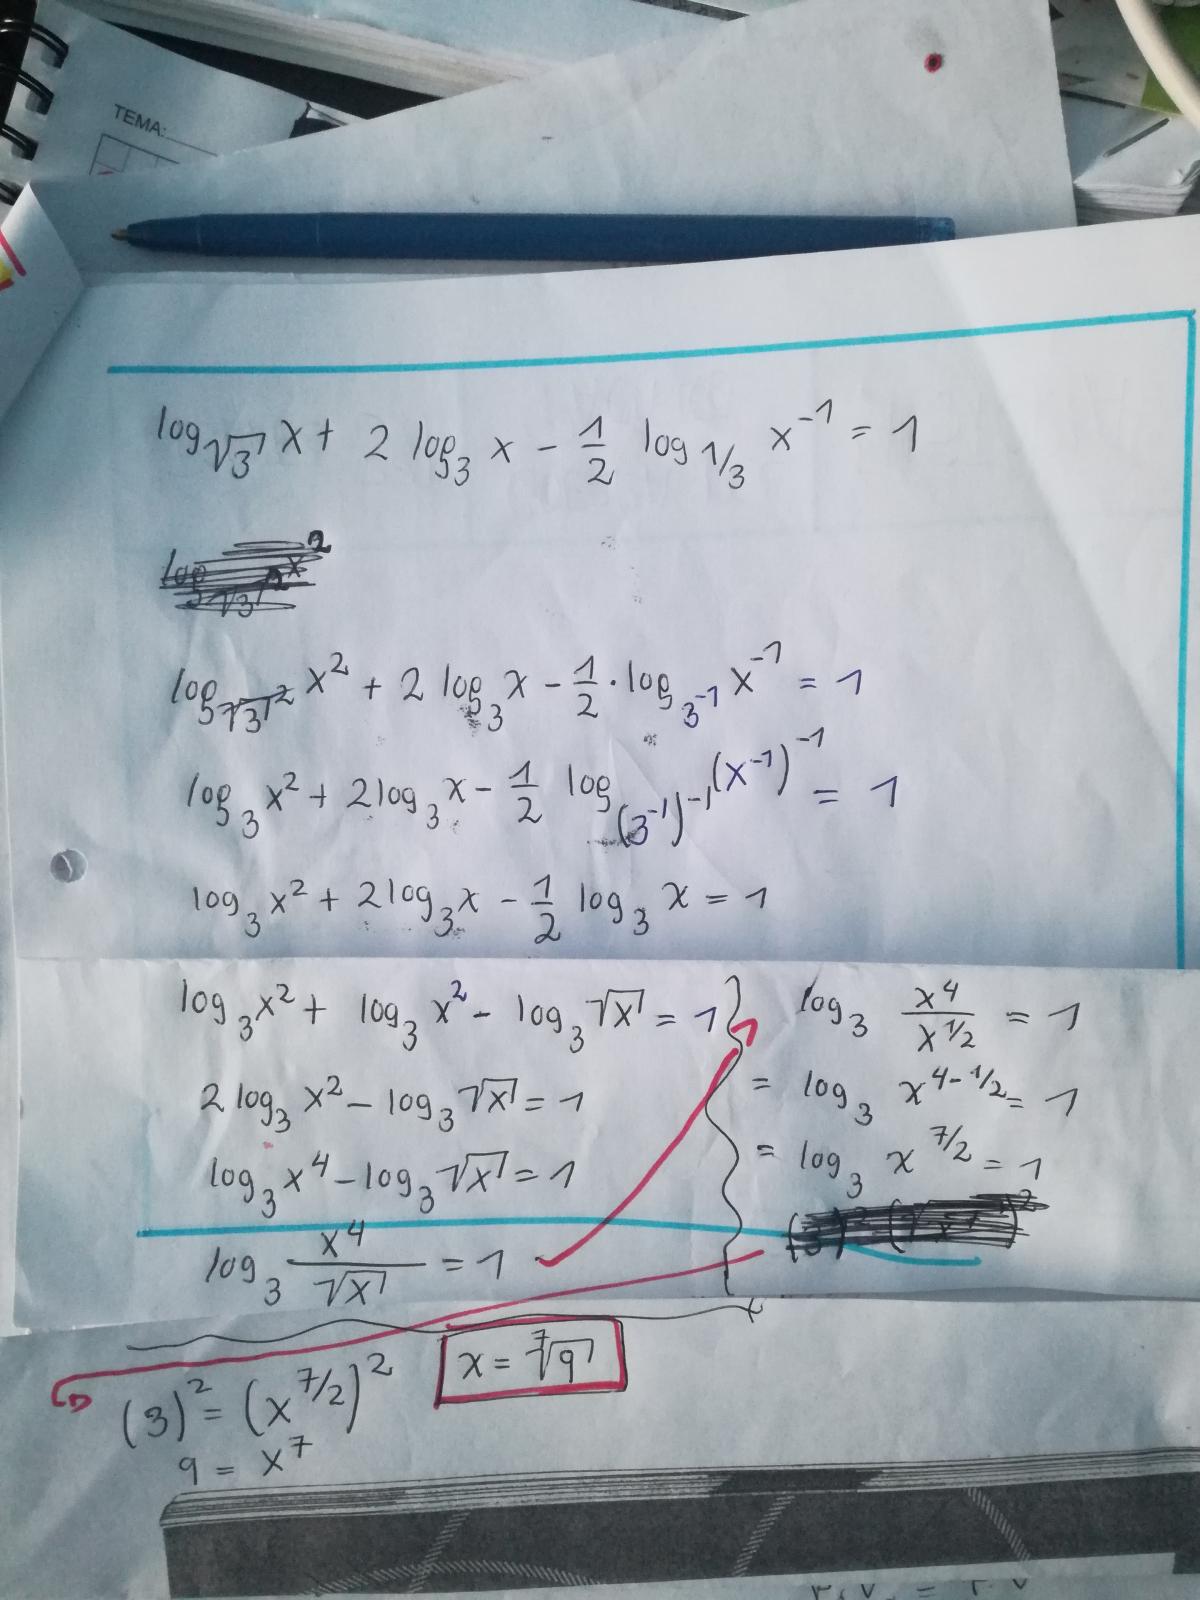 TEMA:
log√3 x + 2 log₃ x - 1/2 log 1/3 x⁻¹ = 1
log√3² x²
log√3² x² + 2 log₃ x - 1/2 · log₃⁻¹ x⁻¹ = 1
log₃ x² + 2 log₃ x - 1/2 log(3⁻¹)⁻¹ (x⁻¹)⁻¹ = 1
log₃ x² + 2 log₃ x - 1/2 log₃ x = 1
log₃ x² + log₃ x² - log₃ √x = 1
2 log₃ x² - log₃ √x = 1
log₃ x⁴ - log₃ √x = 1
log₃ x⁴/√x = 1
log₃ x⁴/x^1/2 = 1
= log₃ x^4-1/2 = 1
= log₃ x^7/2 = 1
(3)² = (x^7/2)²
9 = x⁷
x = ⁷√9